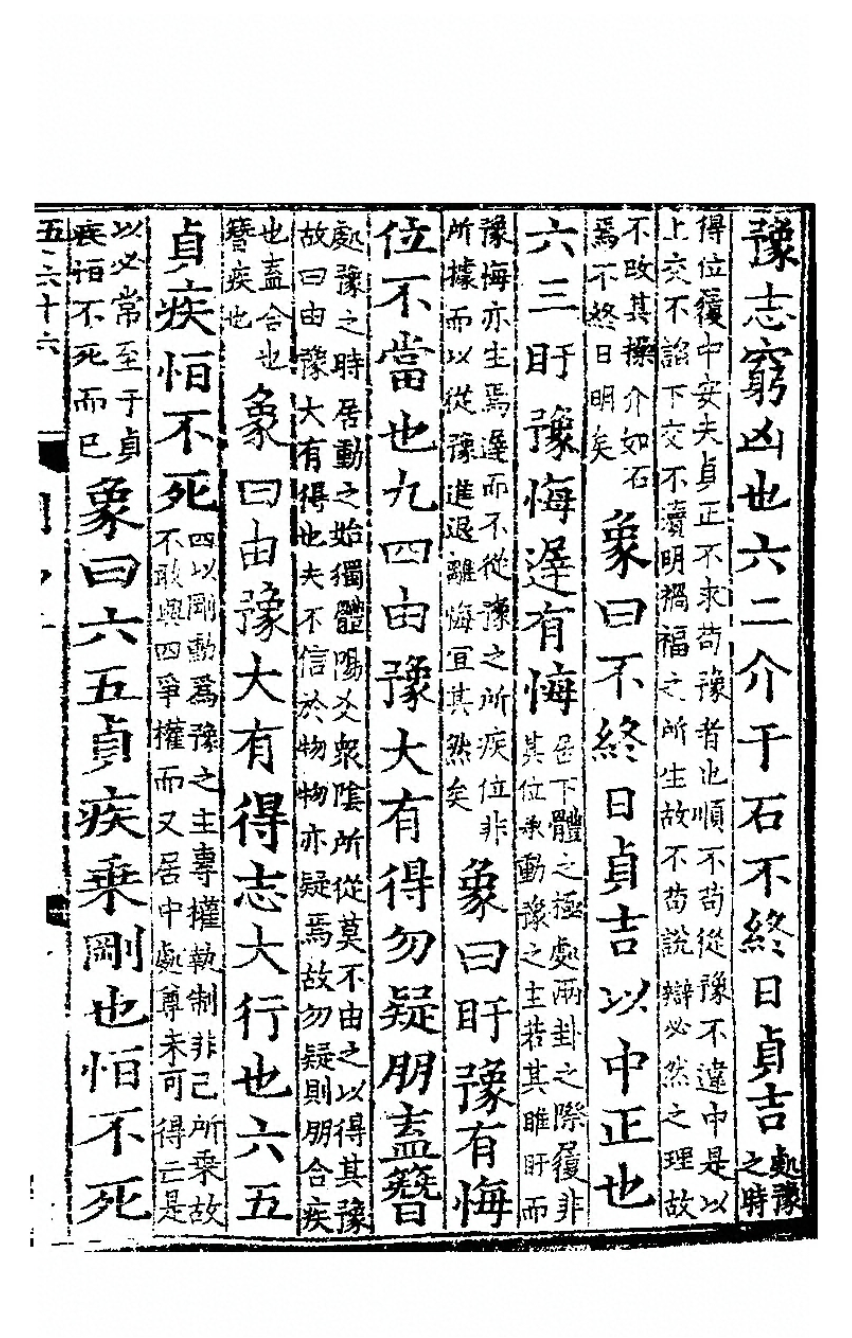 豫志窮凶也六二介于石不終日貞吉處豫之時
得位履中安夫貞正不求苟豫者也順不苟從豫不違中是以
上交不諂下交不瀆明禍福之所生故不苟說辯必然之理故
不改其操介如石焉不終日明矣象曰不終日貞吉以中正也
六三盱豫悔遲有悔居下體之極處兩卦之際履非其位承動豫之主若其睢盱而
豫悔亦生焉遲而不從豫之所疾位非所據而以從豫進退離悔宜其然矣象曰盱豫有悔
位不當也九四由豫大有得勿疑朋盍簪
處豫之時居動之始獨體陽爻衆陰所從莫不由之以得其豫
故曰由豫大有得也夫不信於物物亦疑焉故勿疑則朋合疾
也盍合也簪疾也象曰由豫大有得志大行也六五
貞疾恒不死四以剛動爲豫之主專權執制非己所乗故不敢與四爭權而又居中處尊未可得亡是
以必常至于貞疾恒不死而已象曰六五貞疾乗剛也恒不死
五六十六